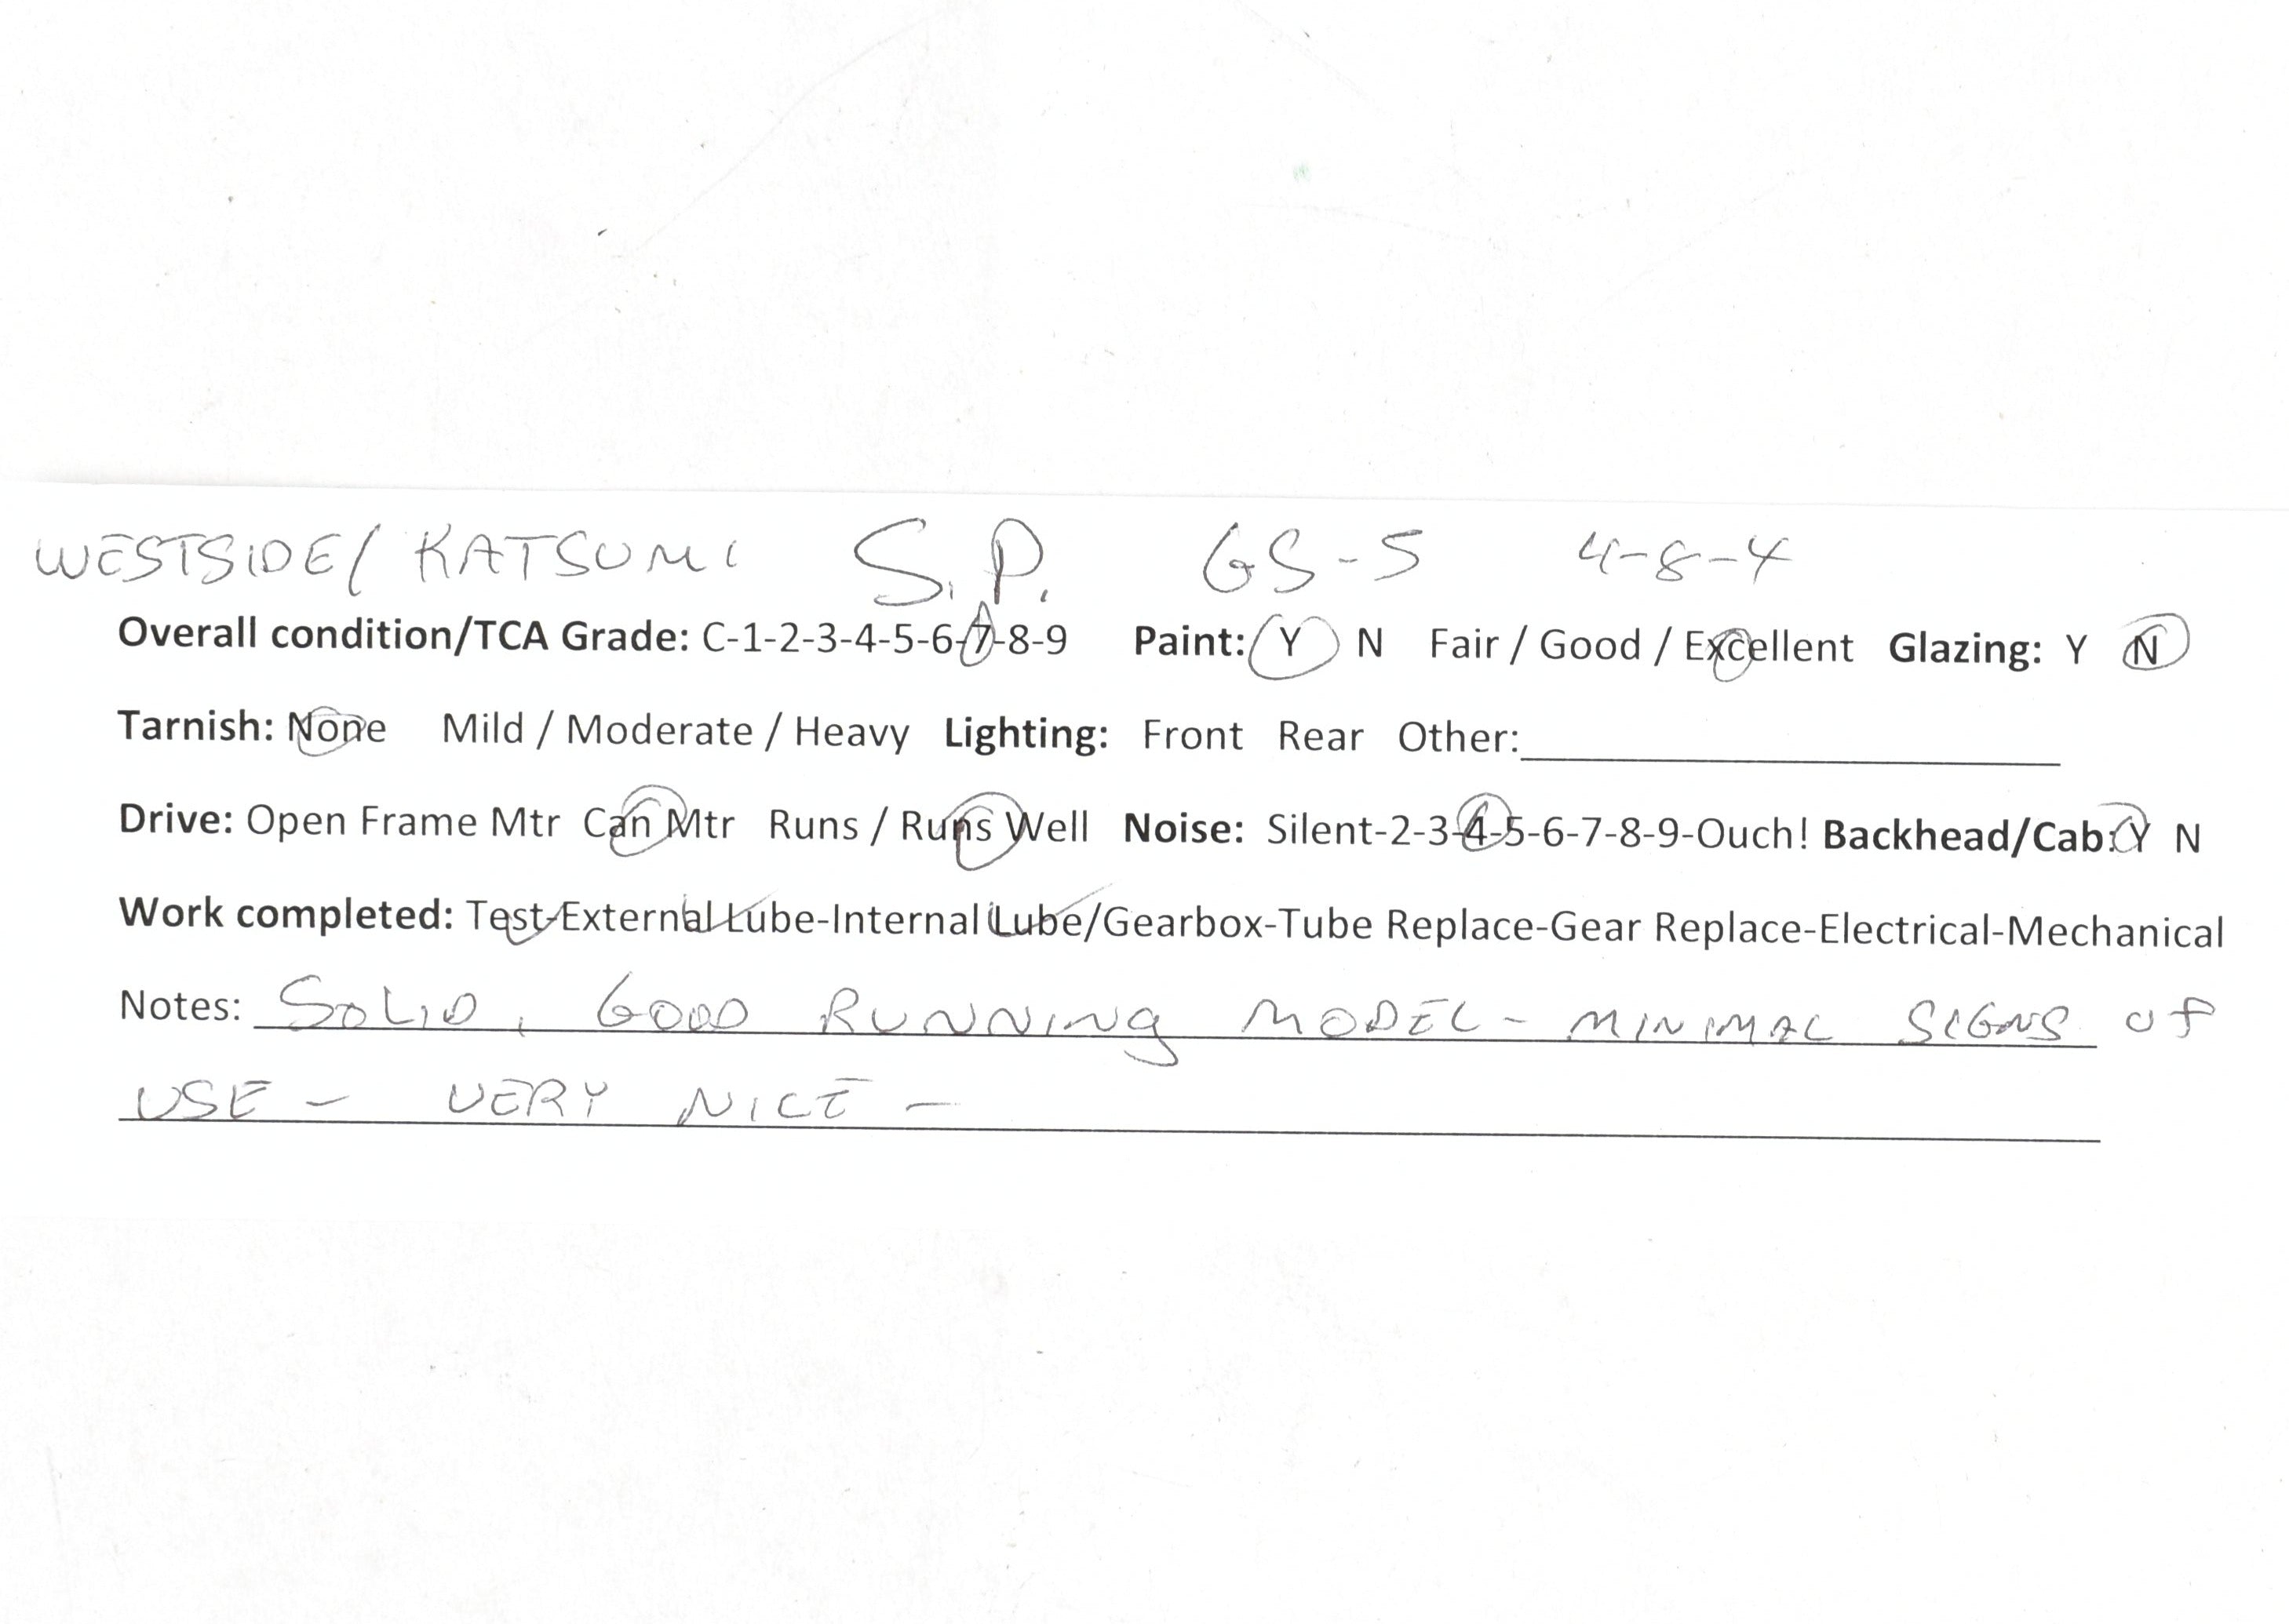 WESTSIDE/ KATSUMI S.P. GS-5 4-8-4
Overall condition/TCA Grade: C-1-2-3-4-5-6-7-8-9 Paint: Y N Fair / Good / Excellent Glazing: Y N
Tarnish: None Mild / Moderate / Heavy Lighting: Front Rear Other:
Drive: Open Frame Mtr Can Mtr Runs / Runs Well Noise: Silent-2-3-4-5-6-7-8-9-Ouch! Backhead/Cab: Y N
Work completed: Test-External Lube-Internal Lube/Gearbox-Tube Replace-Gear Replace-Electrical-Mechanical
Notes: SOLID, GOOD RUNNING MODEL - MINIMAL SIGNS OF
USE - VERY NICE -